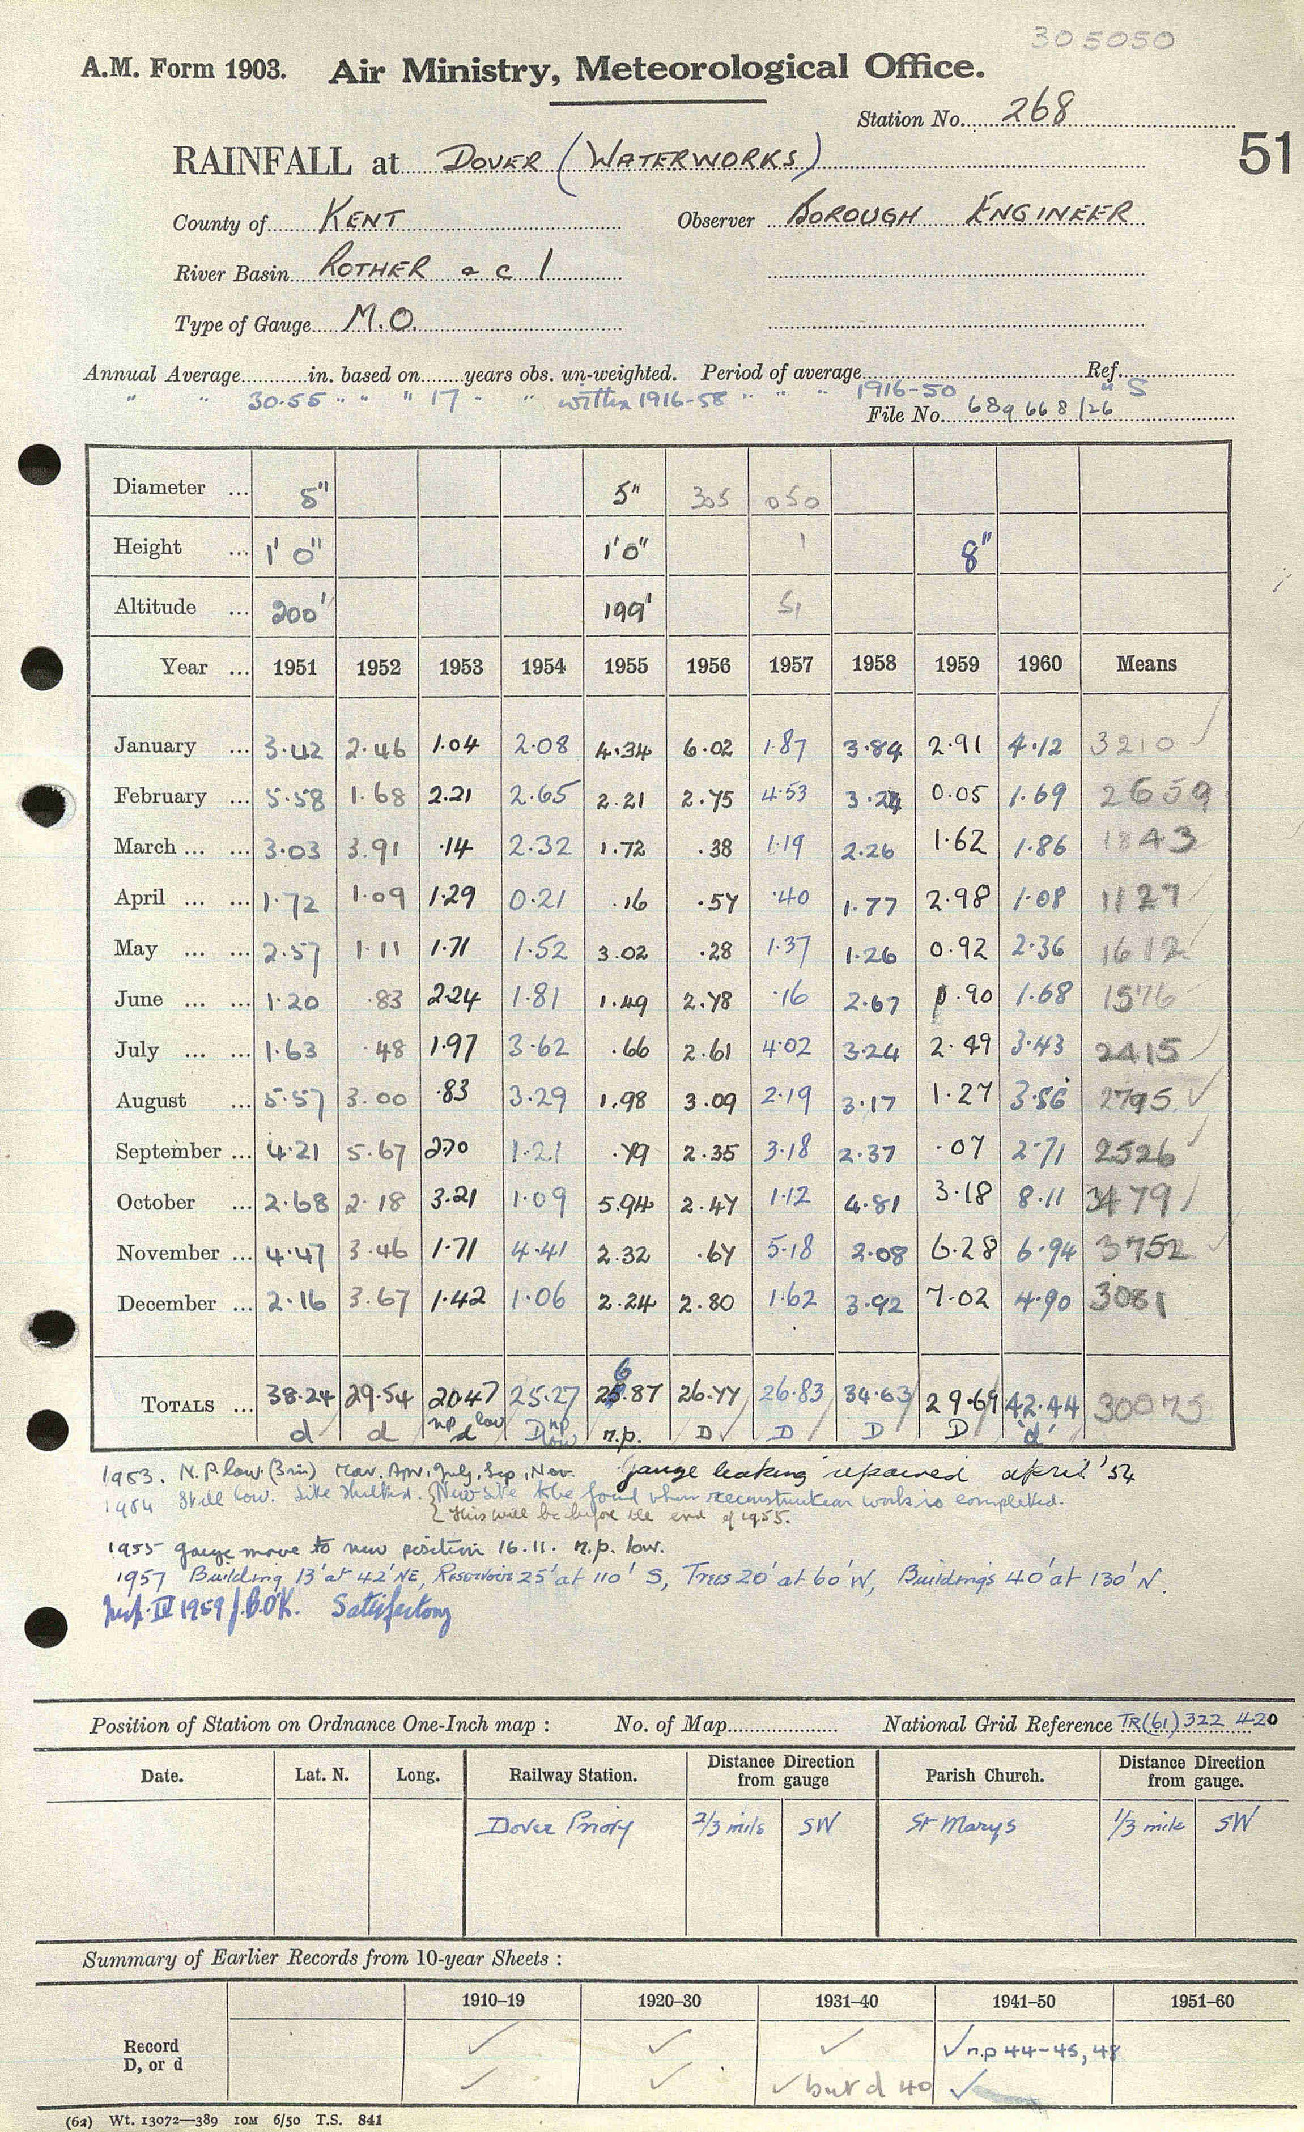 305050
A.M. Form 1903. Air Ministry, Meteorological Office.
Station No. 268
51
RAINFALL at DOVER (WATERWORKS)
County of KENT Observer BOROUGH ENGINEER
River Basin ROTHER & C 1
Type of Gauge M.O.
Annual Average in. based on years obs. un-weighted. Period of average Ref.
" " 30.55 " " " 17 " " within 1916-58 " " " 1916-50 " S
File No. 689668/26
Diameter ... 5" 5" 305 050
Height ... 1' 0" 1'0" 1 8"
Altitude ... 200' 199'
Year ... 1951 1952 1953 1954 1955 1956 1957 1958 1959 1960 Means
January ... 3.42 2.46 1.04 2.08 4.34 6.02 1.87 3.84 2.91 4.12 3210
February ... 5.58 1.68 2.21 2.65 2.21 2.75 4.53 3.24 0.05 1.69 2659
March ... ... 3.03 3.91 .14 2.32 1.72 .38 1.19 2.26 1.62 1.86 1843
April ... ... 1.72 1.09 1.29 0.21 .16 .57 .40 1.77 2.98 1.08 1127
May ... ... 2.57 1.11 1.71 1.52 3.02 .28 1.37 1.26 0.92 2.36 1612
June ... ... 1.20 .83 2.24 1.81 1.49 2.78 .16 2.67 .90 1.68 1576
July ... ... 1.63 .48 1.97 3.62 .66 2.61 4.02 3.24 2.49 3.43 2415
August ... 5.57 3.00 .83 3.29 1.98 3.09 2.19 3.17 1.27 3.56 2795
September ... 4.21 5.67 2.70 1.21 .79 2.35 3.18 2.37 .07 2.71 2526
October ... 2.68 2.18 3.21 1.09 5.94 2.47 1.12 4.81 3.18 8.11 3479
November ... 4.47 3.46 1.71 4.41 2.32 .67 5.18 2.08 6.28 6.94 3752
December ... 2.16 3.67 1.42 1.06 2.24 2.80 1.62 3.92 7.02 4.90 3081
TOTALS ... 38.24 29.54 20.47 25.27 26.87 26.77 26.83 34.63 29.69 42.44 30075
d d np low d D np low n.p. D D D D 'd'
1953. N.P. low (3in) Mar. Apr. July, Sep, Nov. Gauge leaking repaired april '54
1954 Still low. Site shielded. {New site to be found when reconstruction work is completed.
{ This will be before the end of 1955.
1955 gauge move to new position 16.11. n.p. low.
1957 Building 13' at 42' NE, Reservoir 25' at 110' S, Trees 20' at 60' W, Buildings 40' at 130' N.
Insp. IV 1959 Satisfactory
Position of Station on Ordnance One-Inch map : No. of Map National Grid Reference TR(61) 322 420
Date. Lat. N. Long. Railway Station. Distance Direction from gauge Parish Church. Distance Direction from gauge.
Dover Priory 2/3 mile SW St Marys 1/3 mile SW
Summary of Earlier Records from 10-year Sheets :
1910–19 1920–30 1931–40 1941–50 1951–60
Record ✓ ✓ ✓ ✓ n.p 44-45, 48
D, or d ✓ ✓ ✓ but d 40 ✓
(62) Wt. 13072—389 10M 6/50 T.S. 841